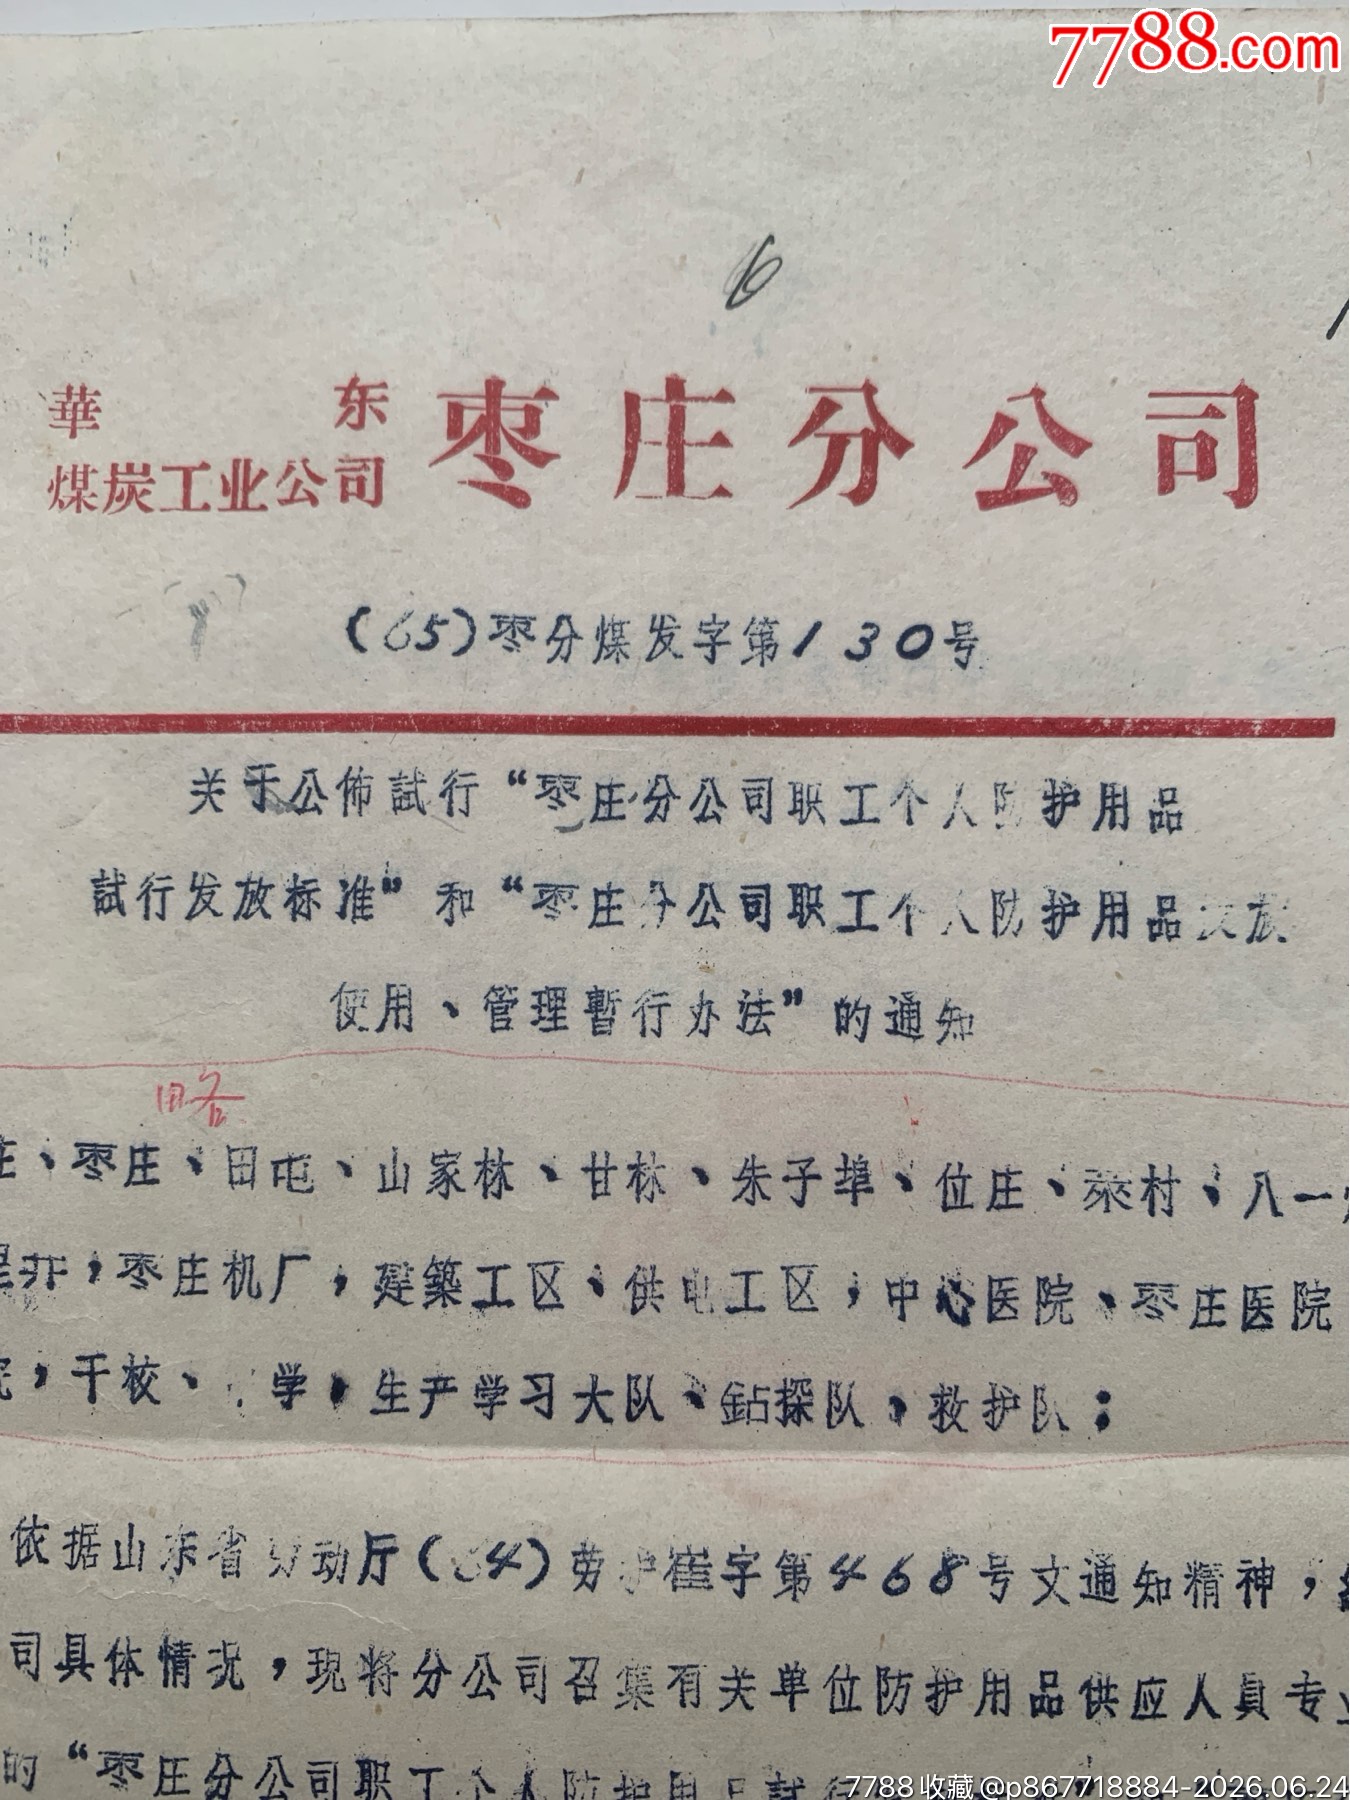 7788.com
6
華东
煤炭工业公司
枣庄分公司
(65)枣分煤发字第130号
关于公佈試行“枣庄分公司职工个人防护用品
試行发放标准”和“枣庄分公司职工个人防护用品发放
使用、管理暫行办法”的通知
略
庄、枣庄、田屯、山家林、甘林、朱子埠、位庄、菜村、八一
井，枣庄机厂，建築工区、供电工区，中心医院、枣庄医院
院，干校、学，生产学习大队、鉆探队，救护队：
依据山东省劳动厅(64)劳护崔字第468号文通知精神，
司具体情况，现将分公司召集有关单位防护用品供应人員专
的“枣庄分公司职工个人防护用品試行
7788收藏@p867718884-2026.06.24